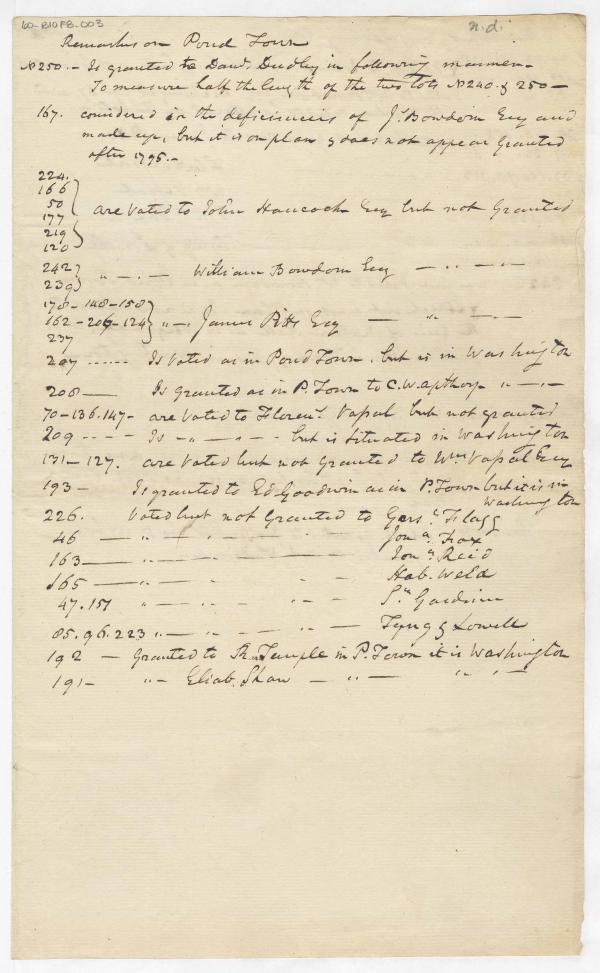 60-B10F8-003
n.d.
Remarks on Pond Town
No 250.- Is granted to Davd. Dudley in following manner-
To measure half the length of the two lots No 240 & 250-
167. considered in the deficiencies of Js. Bowdoin Esq and
made up, but it is on plan & does not appear Granted
after 1795.-
224.
166
50
177
219
120
are Voted to John Hancock Esq but not Granted
242
239
" - . - William Bowdoin Esq - " - " -
178 - 148 - 158
162 - 206 - 124
237
" - . James Pitts Esq - " - . -
207 ...... Is Voted as in Pond Town. but is in Washington
208 - Is granted as in P. Town to C. W. Apthorp " - . -
70 - 136. 147 - are Voted to Floren. Vassal but not granted
209 - - - - Is - " - " - - but is situated in Washington
131 - 127. are Voted but not Granted to Wm Vassal Esq
193 - Is granted to Ed Goodwin as in P. Town but it is in
Washington
226. Voted but not Granted to Gers. Flagg
46 - " - " - - Jona. Fox
163 - " - " - - Jona. Reid
165 - " - " - - Hab. Weld
47. 157 " - " - " - - Gardiner
85. 96. 223 " - " - " - Tyng & Lowell
192 - Granted to Temple in P. Town it is Washington
191 - " - Eliab. Shaw - " - " - -